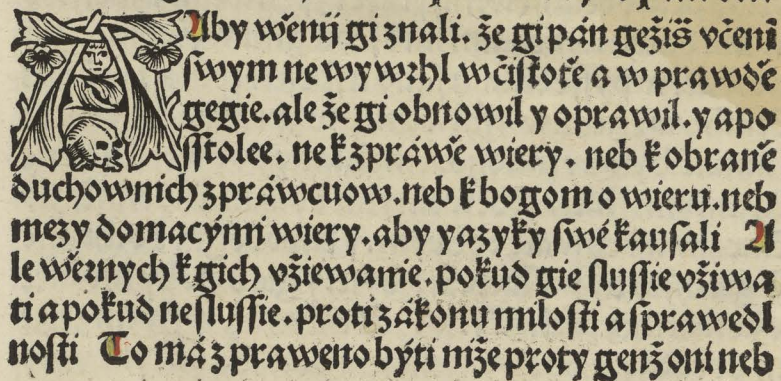 Aby wěrnij gi znali. že gi pán gežiš včeni
ſwym ne wywrhl w čiſtotě a w prawdě
gegie. ale že gi obnowil y oprawil. y apo
ſſtolee. nek zpráwě wiery. neb k obraně
duchownich zpráwcuow. neb k bogom o wieru. neb
mezy domacými wiery. aby yazyky ſwé kauſali A
le wěrnych k gich vžiewanie. pokud gie ſluſſie vžiwa
ti a pokud neſluſſie. proti zákonu miloſti a ſprawedl
noſti To má zpraweno býti niže proty genž oni neb